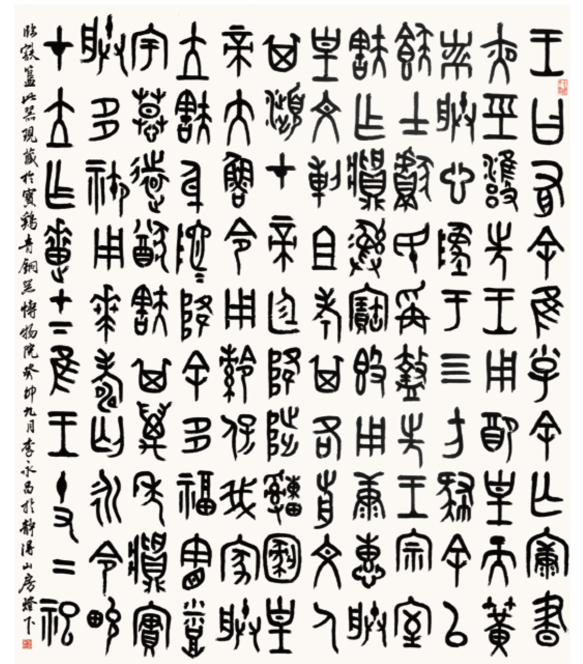 王曰有余隹小子余亡康晝
夜巠雝先王用配皇天簧
黹朕心墜于四方肆余以
𩛥士獻民爯盩先王宗室
㝬乍𩰬彝寶簋用康惠朕
皇文剌且考其各前文人
其瀕才帝廷陟降䌛𦅫皇
帝大魯令用𩁹保我家朕
立㝬身陀=降余多福憲烝
宇慕遠猷㝬其萬年𩰬實
朕多禦用𠦪壽匄永令畯
才立乍疐才下隹王十又二祀
臨㝬簋此器現藏於寶鷄青銅器博物院癸卯九月李永昌於靜得山房燈下